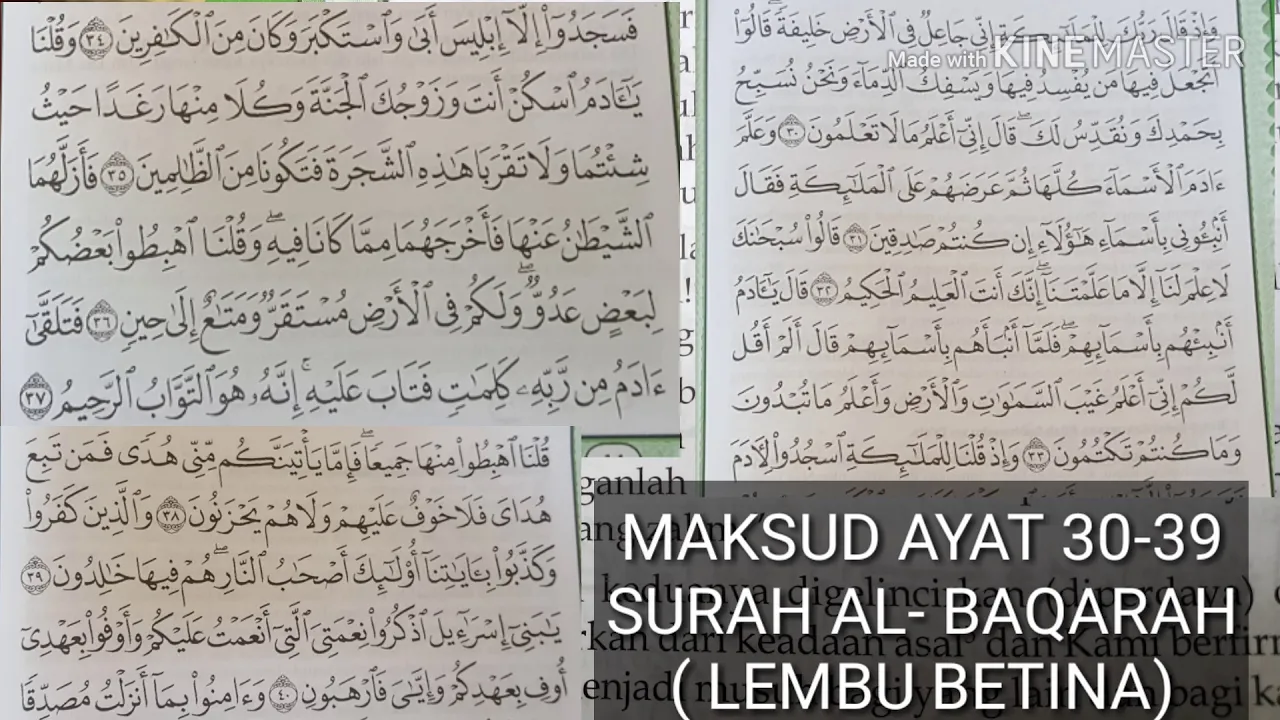 وَإِذْ قَالَ رَبُّكَ لِلْمَلَٰٓئِكَةِ إِنِّى جَاعِلٌ فِى ٱلْأَرْضِ خَلِيفَةً ۖ قَالُوٓا۟
أَتَجْعَلُ فِيهَا مَن يُفْسِدُ فِيهَا وَيَسْفِكُ ٱلدِّمَآءَ وَنَحْنُ نُسَبِّحُ
بِحَمْدِكَ وَنُقَدِّسُ لَكَ ۖ قَالَ إِنِّىٓ أَعْلَمُ مَا لَا تَعْلَمُونَ ٣٠ وَعَلَّمَ
ءَادَمَ ٱلْأَسْمَآءَ كُلَّهَا ثُمَّ عَرَضَهُمْ عَلَى ٱلْمَلَٰٓئِكَةِ فَقَالَ
أَنۢبِـُٔونِى بِأَسْمَآءِ هَٰٓؤُلَآءِ إِن كُنتُمْ صَٰدِقِينَ ٣١ قَالُوا۟ سُبْحَٰنَكَ
لَا عِلْمَ لَنَآ إِلَّا مَا عَلَّمْتَنَآ ۖ إِنَّكَ أَنتَ ٱلْعَلِيمُ ٱلْحَكِيمُ ٣٢ قَالَ يَٰٓـَٔادَمُ
أَنۢبِئْهُم بِأَسْمَآئِهِمْ ۖ فَلَمَّآ أَنۢبَأَهُم بِأَسْمَآئِهِمْ قَالَ أَلَمْ أَقُل
لَّكُمْ إِنِّىٓ أَعْلَمُ غَيْبَ ٱلسَّمَٰوَٰتِ وَٱلْأَرْضِ وَأَعْلَمُ مَا تُبْدُونَ
وَمَا كُنتُمْ تَكْتُمُونَ ٣٣ وَإِذْ قُلْنَا لِلْمَلَٰٓئِكَةِ ٱسْجُدُوا۟ لِـَٔادَمَ
فَسَجَدُوٓا۟ إِلَّآ إِبْلِيسَ أَبَىٰ وَٱسْتَكْبَرَ وَكَانَ مِنَ ٱلْكَٰفِرِينَ ٣٤ وَقُلْنَا
يَٰٓـَٔادَمُ ٱسْكُنْ أَنتَ وَزَوْجُكَ ٱلْجَنَّةَ وَكُلَا مِنْهَا رَغَدًا حَيْثُ
شِئْتُمَا وَلَا تَقْرَبَا هَٰذِهِ ٱلشَّجَرَةَ فَتَكُونَا مِنَ ٱلظَّٰلِمِينَ ٣٥ فَأَزَلَّهُمَا
ٱلشَّيْطَٰنُ عَنْهَا فَأَخْرَجَهُمَا مِمَّا كَانَا فِيهِ ۖ وَقُلْنَا ٱهْبِطُوا۟ بَعْضُكُمْ
لِبَعْضٍ عَدُوٌّ ۖ وَلَكُمْ فِى ٱلْأَرْضِ مُسْتَقَرٌّ وَمَتَٰعٌ إِلَىٰ حِينٍ ٣٦ فَتَلَقَّىٰٓ
ءَادَمُ مِن رَّبِّهِۦ كَلِمَٰتٍ فَتَابَ عَلَيْهِ ۚ إِنَّهُۥ هُوَ ٱلتَّوَّابُ ٱلرَّحِيمُ ٣٧
قُلْنَا ٱهْبِطُوا۟ مِنْهَا جَمِيعًا ۖ فَإِمَّا يَأْتِيَنَّكُم مِّنِّى هُدًى فَمَن تَبِعَ
هُدَاىَ فَلَا خَوْفٌ عَلَيْهِمْ وَلَا هُمْ يَحْزَنُونَ ٣٨ وَٱلَّذِينَ كَفَرُوا۟
وَكَذَّبُوا۟ بِـَٔايَٰتِنَآ أُو۟لَٰٓئِكَ أَصْحَٰبُ ٱلنَّارِ ۖ هُمْ فِيهَا خَٰلِدُونَ ٣٩
يَٰبَنِىٓ إِسْرَٰٓءِيلَ ٱذْكُرُوا۟ نِعْمَتِىَ ٱلَّتِىٓ أَنْعَمْتُ عَلَيْكُمْ وَأَوْفُوا۟ بِعَهْدِىٓ
أُوفِ بِعَهْدِكُمْ وَإِيَّٰىَ فَٱرْهَبُونِ ٤٠ وَءَامِنُوا۟ بِمَآ أَنزَلْتُ مُصَدِّقًا
Made with KINEMASTER
MAKSUD AYAT 30-39
SURAH AL- BAQARAH
( LEMBU BETINA)
ganlah
keduanya digelincirkan (diperdaya)
dari keadaan asal dan Kami